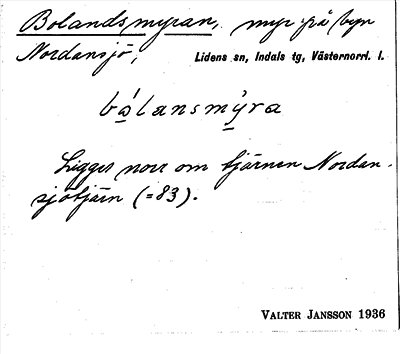 Bolandsmyran, myr på byn
Nordansjö, Lidens sn, Indals tg, Västernorrl. l.
bálansmýra
Ligger norr om tjärnen Nordan-
sjötjärn (=83).
VALTER JANSSON 1936